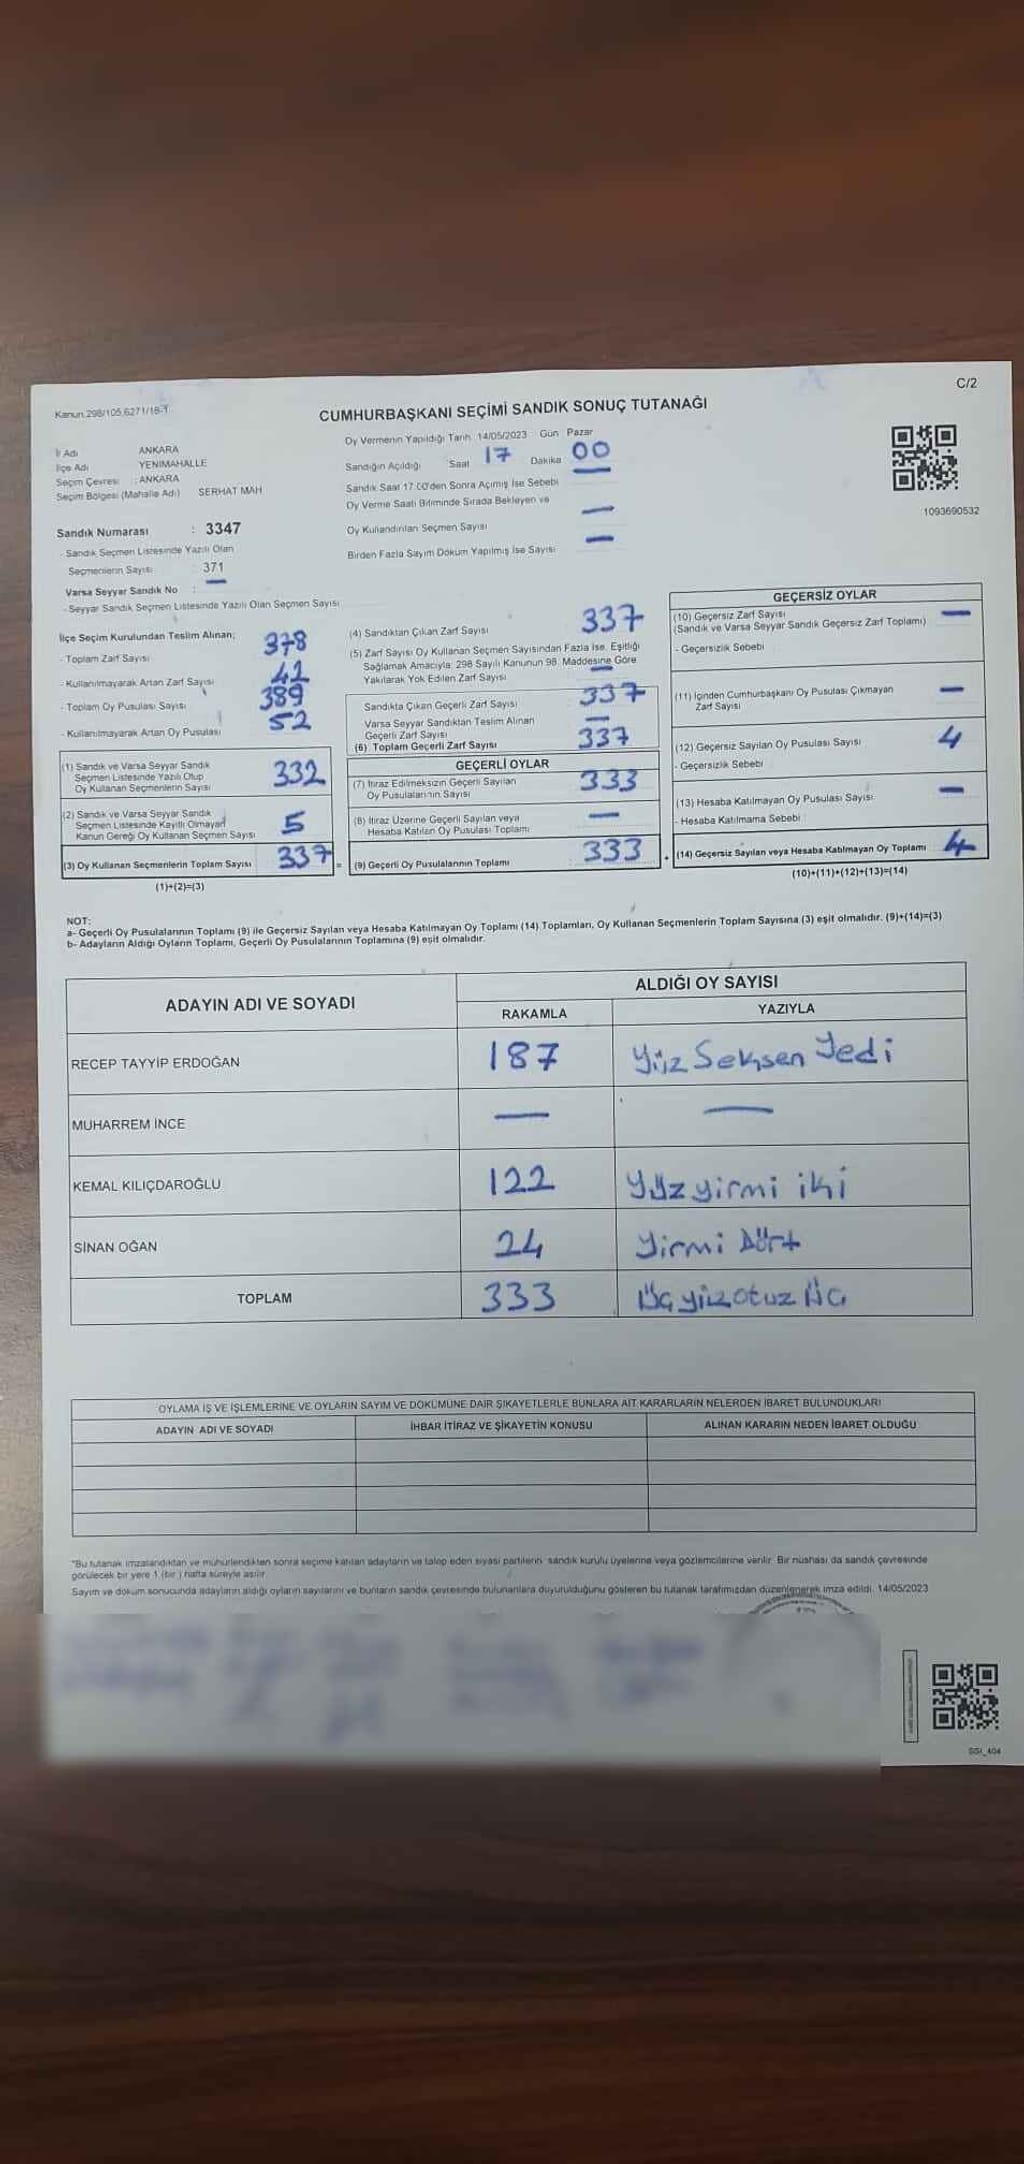 C/2
Kanun.298/105,6271/18-1
CUMHURBAŞKANI SEÇİMİ SANDIK SONUÇ TUTANAĞI
İl Adı ANKARA
İlçe Adı YENİMAHALLE
Seçim Çevresi : ANKARA
Seçim Bölgesi (Mahalle Adı) SERHAT MAH
Oy Vermenin Yapıldığı Tarih 14/05/2023 Gün Pazar
Sandığın Açıldığı Saat 17 Dakika 00
Sandık Saat 17:00'den Sonra Açılmış İse Sebebi —
Oy Verme Saati Bitiminde Sırada Bekleyen ve
Oy Kullandırılan Seçmen Sayısı —
Birden Fazla Sayım Döküm Yapılmış İse Sayısı —
1093690532
Sandık Numarası : 3347
- Sandık Seçmen Listesinde Yazılı Olan
Seçmenlerin Sayısı 371
Varsa Seyyar Sandık No : —
- Seyyar Sandık Seçmen Listesinde Yazılı Olan Seçmen Sayısı
İlçe Seçim Kurulundan Teslim Alınan;
- Toplam Zarf Sayısı 378
- Kullanılmayarak Artan Zarf Sayısı 42
- Toplam Oy Pusulası Sayısı 389
- Kullanılmayarak Artan Oy Pusulası 52
(1) Sandık ve Varsa Seyyar Sandık
Seçmen Listesinde Yazılı Olup
Oy Kullanan Seçmenlerin Sayısı 332
(2) Sandık ve Varsa Seyyar Sandık
Seçmen Listesinde Kayıtlı Olmayan
Kanun Gereği Oy Kullanan Seçmen Sayısı 5
(3) Oy Kullanan Seçmenlerin Toplam Sayısı 337 =
(1)+(2)=(3)
(4) Sandıktan Çıkan Zarf Sayısı 337
(5) Zarf Sayısı Oy Kullanan Seçmen Sayısından Fazla İse, Eşitliği
Sağlamak Amacıyla; 298 Sayılı Kanunun 98. Maddesine Göre
Yakılarak Yok Edilen Zarf Sayısı —
Sandıkta Çıkan Geçerli Zarf Sayısı 337
Varsa Seyyar Sandıktan Teslim Alınan
Geçerli Zarf Sayısı —
(6) Toplam Geçerli Zarf Sayısı 337
GEÇERLİ OYLAR
(7) İtiraz Edilmeksizin Geçerli Sayılan
Oy Pusulalarının Sayısı 333
(8) İtiraz Üzerine Geçerli Sayılan veya
Hesaba Katılan Oy Pusulası Toplamı —
(9) Geçerli Oy Pusulalarının Toplamı 333 +
GEÇERSİZ OYLAR
(10) Geçersiz Zarf Sayısı —
(Sandık ve Varsa Seyyar Sandık Geçersiz Zarf Toplamı)
- Geçersizlik Sebebi
(11) İçinden Cumhurbaşkanı Oy Pusulası Çıkmayan
Zarf Sayısı —
(12) Geçersiz Sayılan Oy Pusulası Sayısı 4
- Geçersizlik Sebebi
(13) Hesaba Katılmayan Oy Pusulası Sayısı —
- Hesaba Katılmama Sebebi
(14) Geçersiz Sayılan veya Hesaba Katılmayan Oy Toplamı 4
(10)+(11)+(12)+(13)=(14)
NOT:
a- Geçerli Oy Pusulalarının Toplamı (9) ile Geçersiz Sayılan veya Hesaba Katılmayan Oy Toplamı (14) Toplamları, Oy Kullanan Seçmenlerin Toplam Sayısına (3) eşit olmalıdır. (9)+(14)=(3)
b- Adayların Aldığı Oyların Toplamı, Geçerli Oy Pusulalarının Toplamına (9) eşit olmalıdır.
ADAYIN ADI VE SOYADI
ALDIĞI OY SAYISI
RAKAMLA YAZIYLA
RECEP TAYYİP ERDOĞAN 187 Yüz Seksen Yedi
MUHARREM İNCE — —
KEMAL KILIÇDAROĞLU 122 Yüz yirmi iki
SİNAN OĞAN 24 Yirmi Dört
TOPLAM 333 Üç yüz otuz Üç
OYLAMA İŞ VE İŞLEMLERİNE VE OYLARIN SAYIM VE DÖKÜMÜNE DAİR ŞİKAYETLERLE BUNLARA AİT KARARLARIN NELERDEN İBARET BULUNDUKLARI
ADAYIN ADI VE SOYADI İHBAR İTİRAZ VE ŞİKAYETİN KONUSU ALINAN KARARIN NEDEN İBARET OLDUĞU
*Bu tutanak imzalandıktan ve mühürlendikten sonra seçime katılan adayların ve talep eden siyasi partilerin sandık kurulu üyelerine veya gözlemcilerine verilir. Bir nüshası da sandık çevresinde
görülecek bir yere 1 (bir) hafta süreyle asılır.
Sayım ve döküm sonucunda adayların aldığı oyların sayılarını ve bunların sandık çevresinde bulunanlara duyurulduğunu gösteren bu tutanak tarafımızdan düzenlenerek imza edildi. 14/05/2023
SSI_404